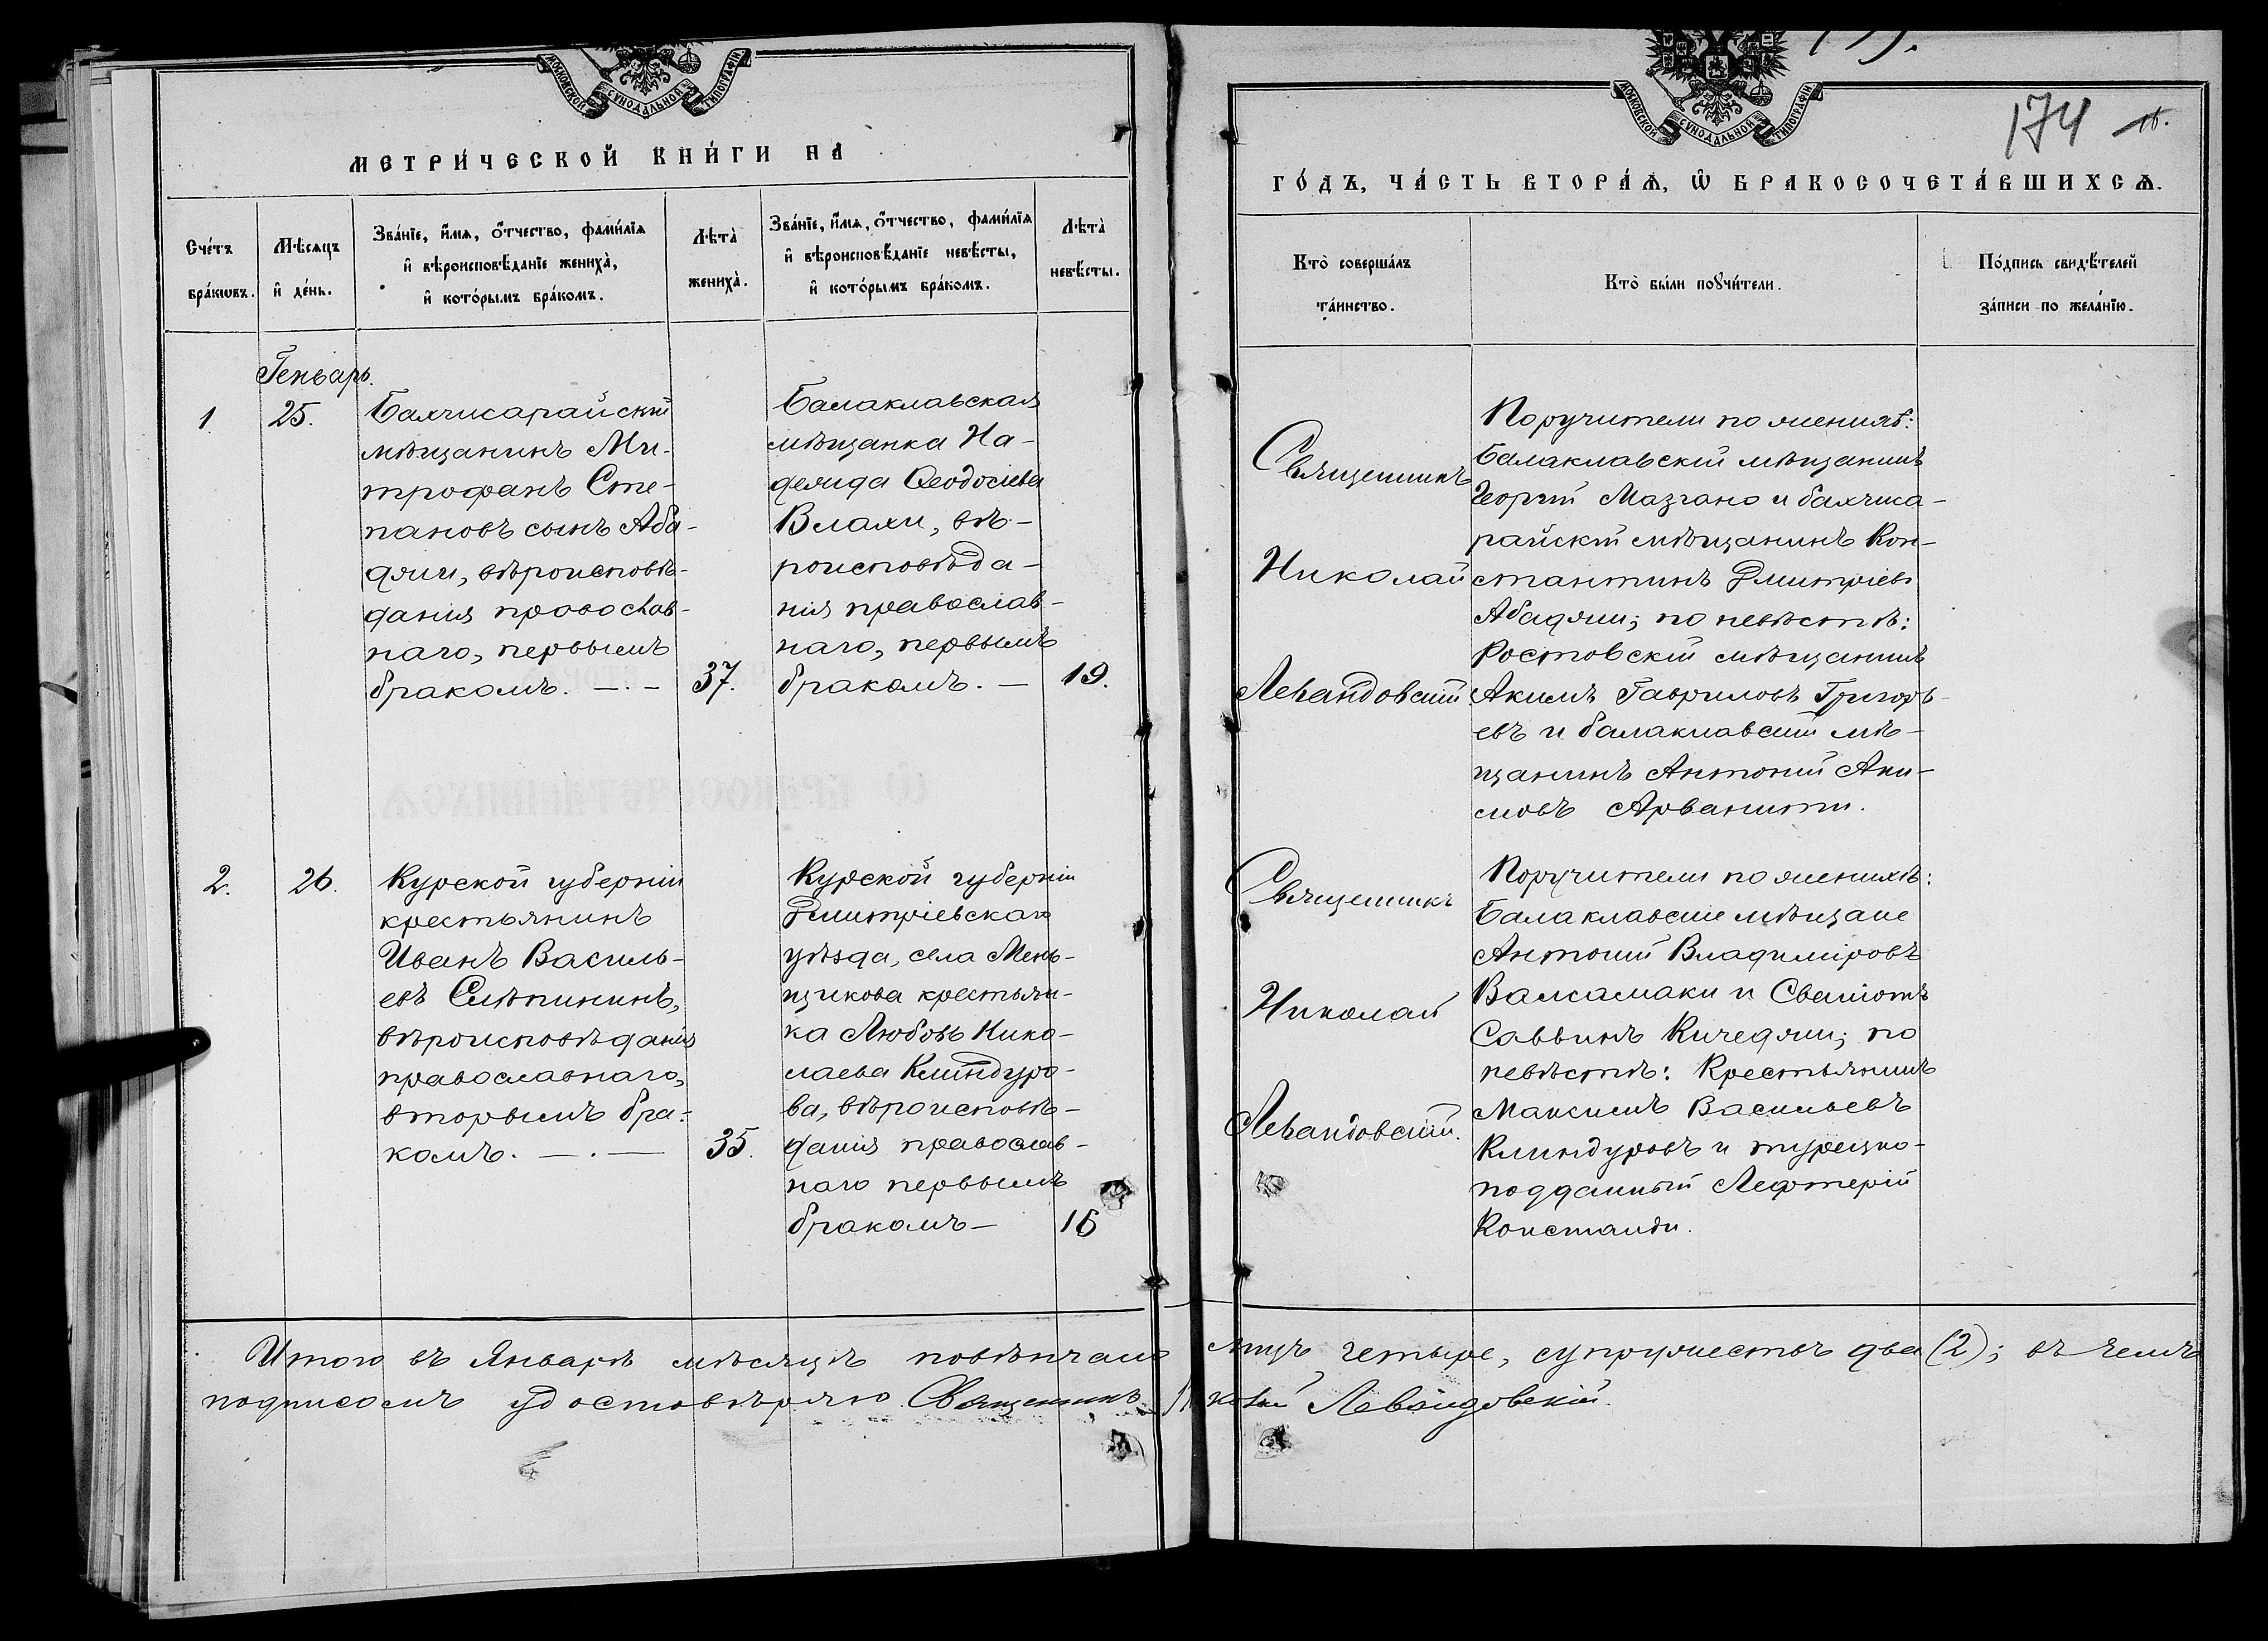 МОСКОВСКОЙ СУНОДАЛЬНОЙ ТИПОГРАФІИ
МЕТРИ́ЧЕСКОЙ КНИ́ГИ НА
Сче́тъ бра́кѡвъ.
Мѣсяцъ и҆ де́нь.
Зва́нїе, и҆́мѧ, ѻ҆́тчество, фами́лїѧ
и҆ вѣроисповѣ́данїе женихà,
и҆ кото́рымъ бра́комъ.
Лѣтà женихà.
Зва́нїе, и҆́мѧ, ѻ҆́тчество, фами́лїѧ
и҆ вѣроисповѣ́данїе невѣ́сты,
и҆ кото́рымъ бра́комъ.
Лѣтà невѣ́сты.
Генварь.
1.
25.
Бахчисарайскій
мѣщанинъ Ми-
трофанъ Сте-
пановъ сынъ Аба-
джи, вѣроисповѣ-
данія православ-
наго, первымъ
бракомъ. —.—
37.
Балаклавская
мѣщанка На-
дежда Ѳеодосіева
Влахи, вѣ-
роисповѣда-
нія православ-
наго, первымъ
бракомъ. —
19.
2.
26.
Курской губерніи
крестьянинъ
Иванъ Василь-
евъ Слѣпининъ,
вѣроисповѣданія
православнаго,
вторымъ бра-
комъ. —.—
35.
Курской губерніи
Дмитріевскаго
уѣзда, села Мень-
щикова крестьян-
ка Любовь Нико-
лаева Клиндухо-
ва, вѣроисповѣ-
данія православ-
наго первымъ
бракомъ —
16
МОСКОВСКОЙ СУНОДАЛЬНОЙ ТИПОГРАФІИ
174
ГО́ДЪ, ЧА́СТЬ ВТОРА́Ѧ, Ѡ҆ БРАКОСОЧЕТА́ВШИХСѦ.
Ктò соверша́лъ
та́инство.
Ктò бы́ли порꙋчи́тели.
По́дпись свидѣ́телей
за́писи по жела́нїю.
Священникъ
Николай
Левандовскій
Поручители по женихѣ:
Балаклавскій мѣщанинъ
Георгій Мазгано и бахчиса-
райскій мѣщанинъ Кон-
стантинъ Дмитріевъ
Абаджи; по невѣстѣ:
Ростовскій мѣщанинъ
Акимъ Гавриловъ Григорь-
евъ и балаклавскій мѣ-
щанинъ Антоній Аки-
мовъ Арванити.
Священникъ
Николай
Левандовскій.
Поручители по женихѣ:
Балаклавскіе мѣщане
Антоній Владиміровъ
Валсамаки и
Саввинъ Кичеджи; по
невѣстѣ: Крестьянинъ
Максимъ Васильевъ
Клиндуховъ и турецко-
подданный Лефтерій
Констанди.
Итого въ Январѣ мѣсяцѣ повѣнчано лицъ четыре, супружествъ два (2); въ чемъ
подписомъ удостовѣряю Священникъ Левандовскій.